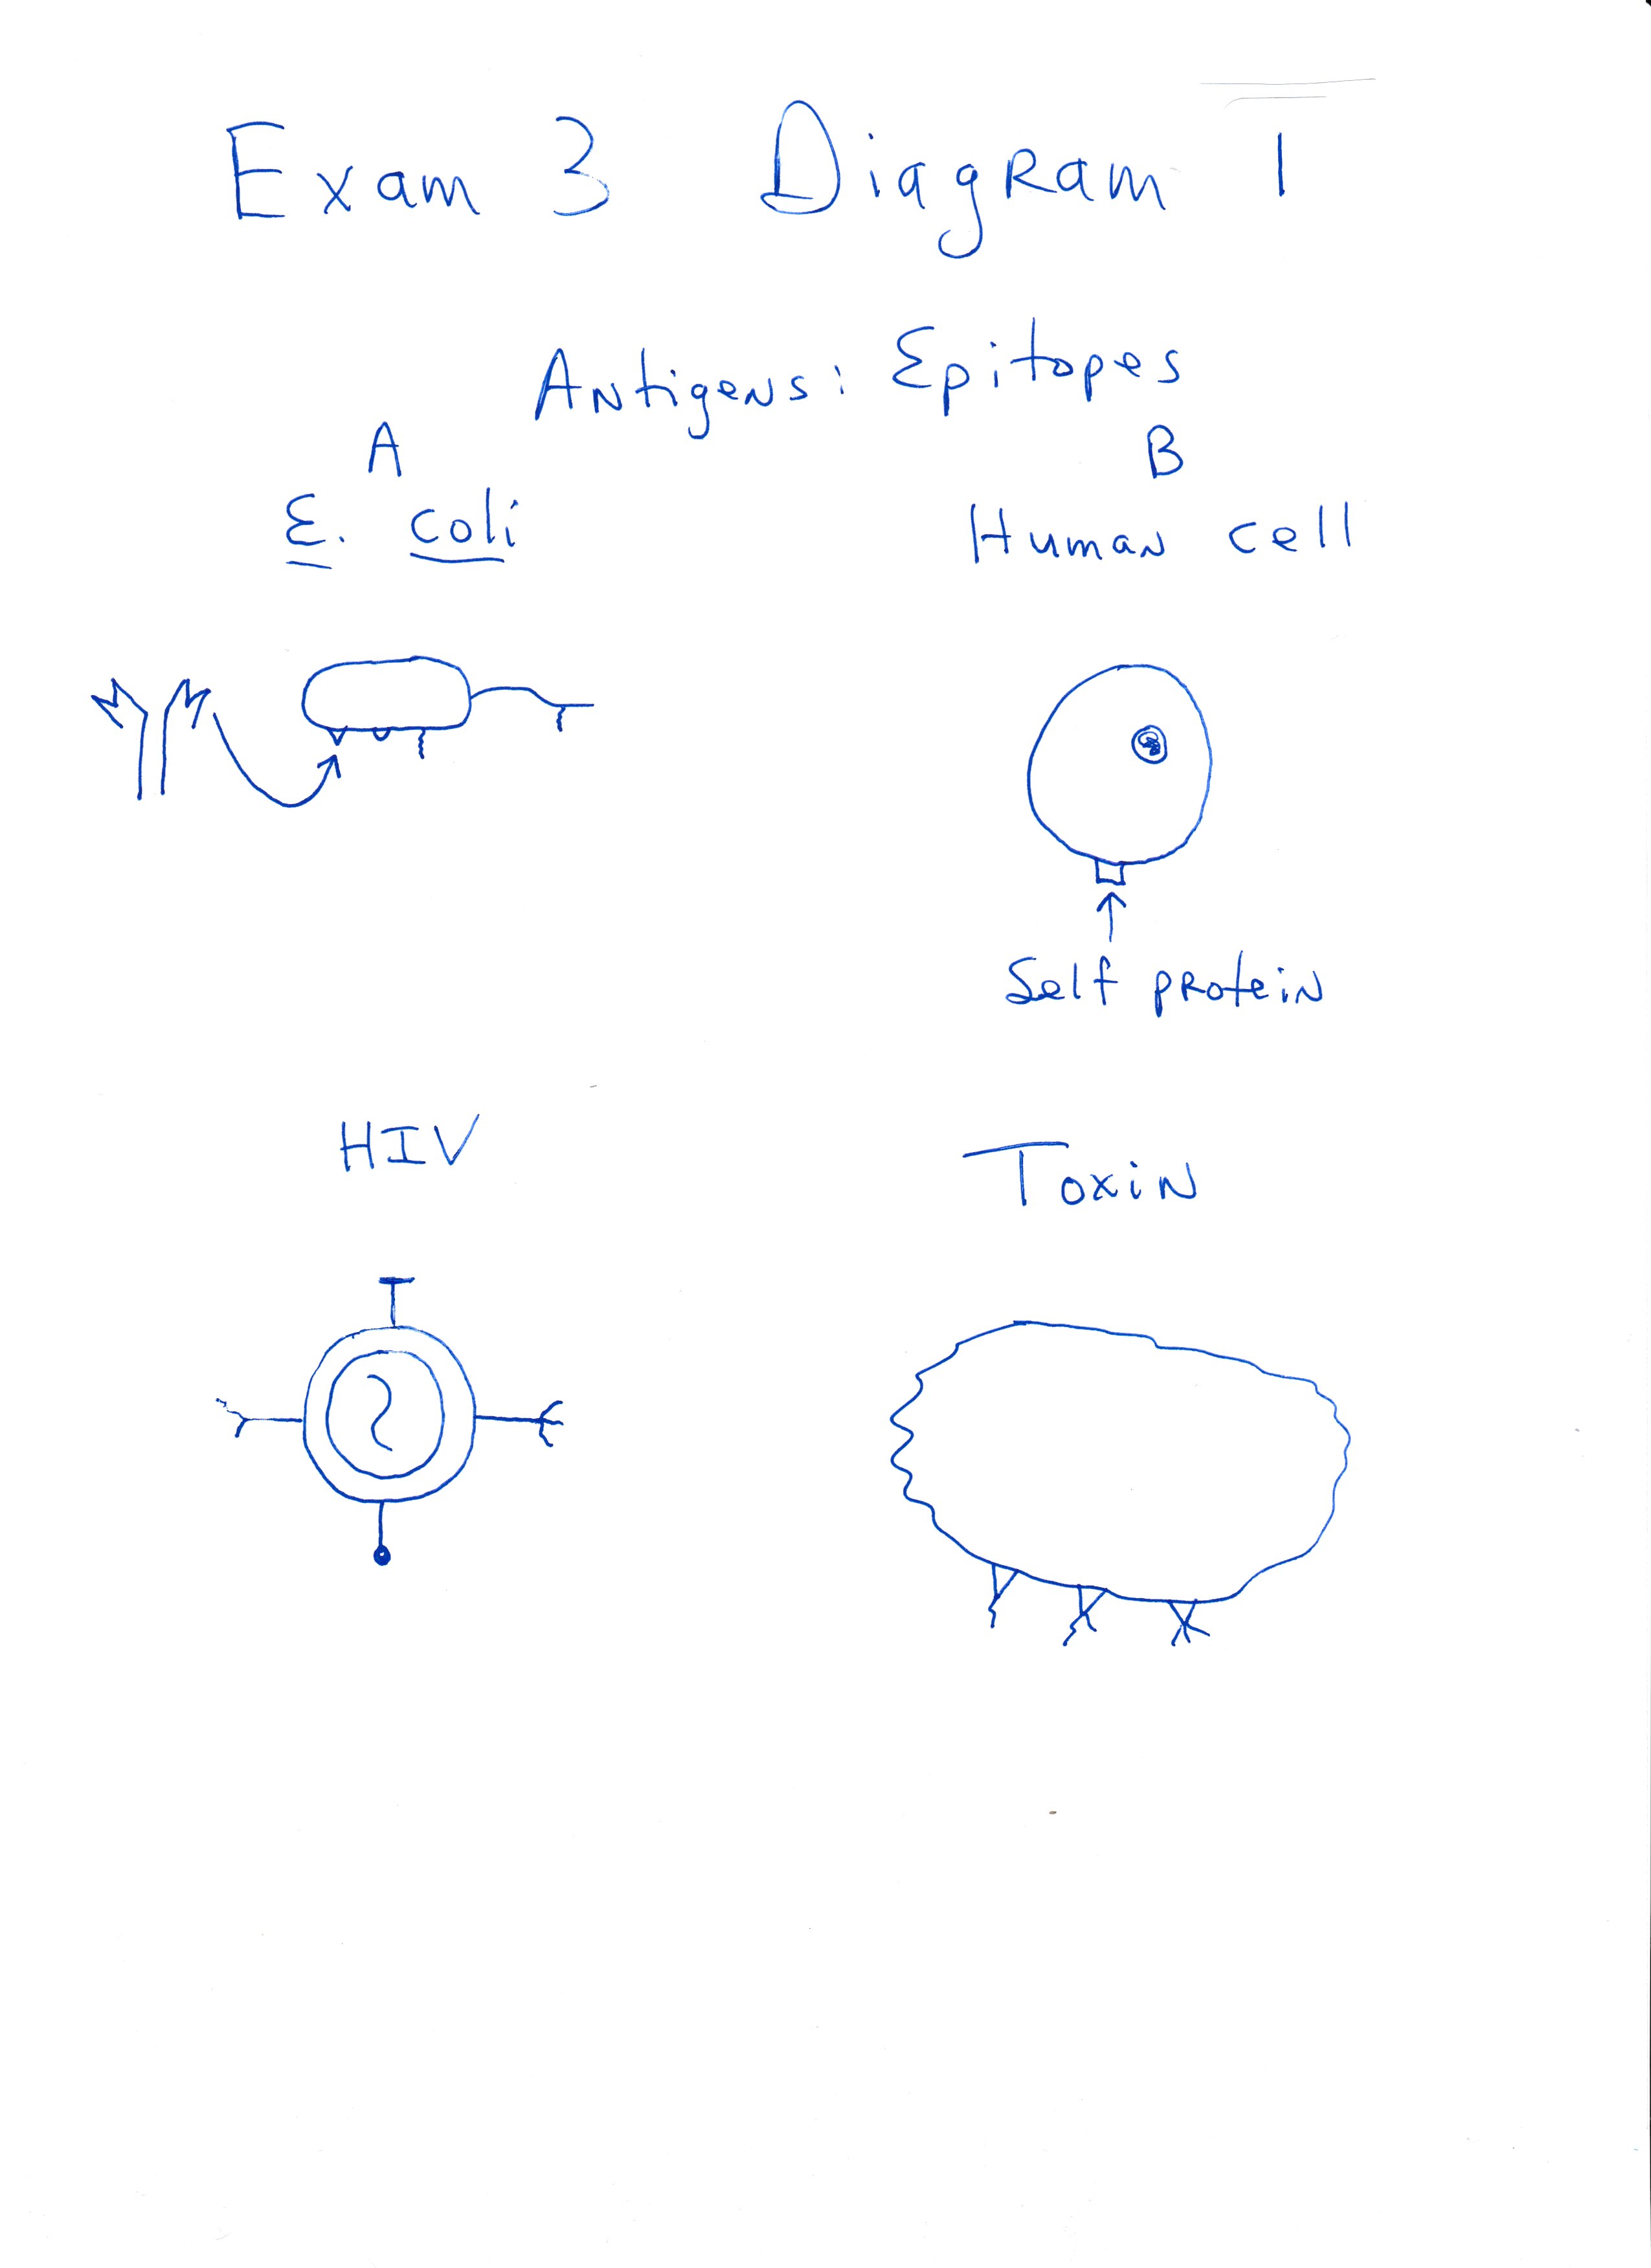 Exam 3 Diagram 1
Antigens: Epitopes
A
E. coli
B
Human cell
Self protein
HIV
Toxin